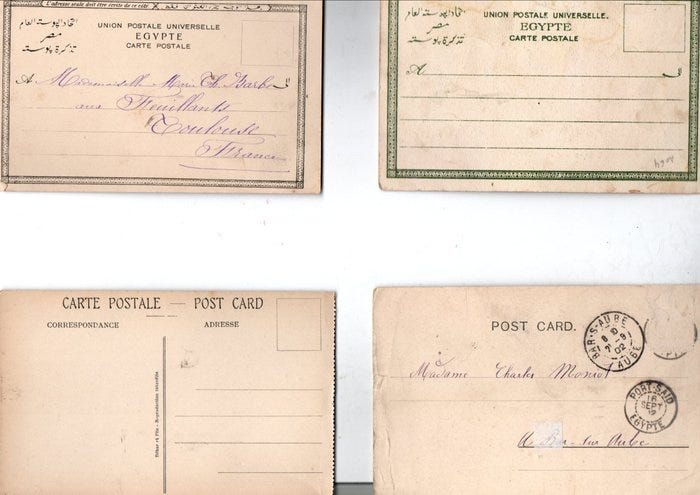 L'adresse seule doit être écrite de ce côté
اتحاد البوستة العام
مصر
تذكرة بوسته
UNION POSTALE UNIVERSELLE
EGYPTE
CARTE POSTALE
A Mademoiselle Marie Th. Barbe
aux Feuillants
Toulouse
France
اتحاد البوستة العام
مصر
تذكرة بوسته
UNION POSTALE UNIVERSELLE.
EGYPTE
CARTE POSTALE
A
CARTE POSTALE — POST CARD
CORRESPONDANCE
ADRESSE
POST CARD.
BAR-S-AUBE
AUBE
Madame Charles Moniot
PORT-SAID
16
SEPT
EGYPTE
A Bar-sur-Aube